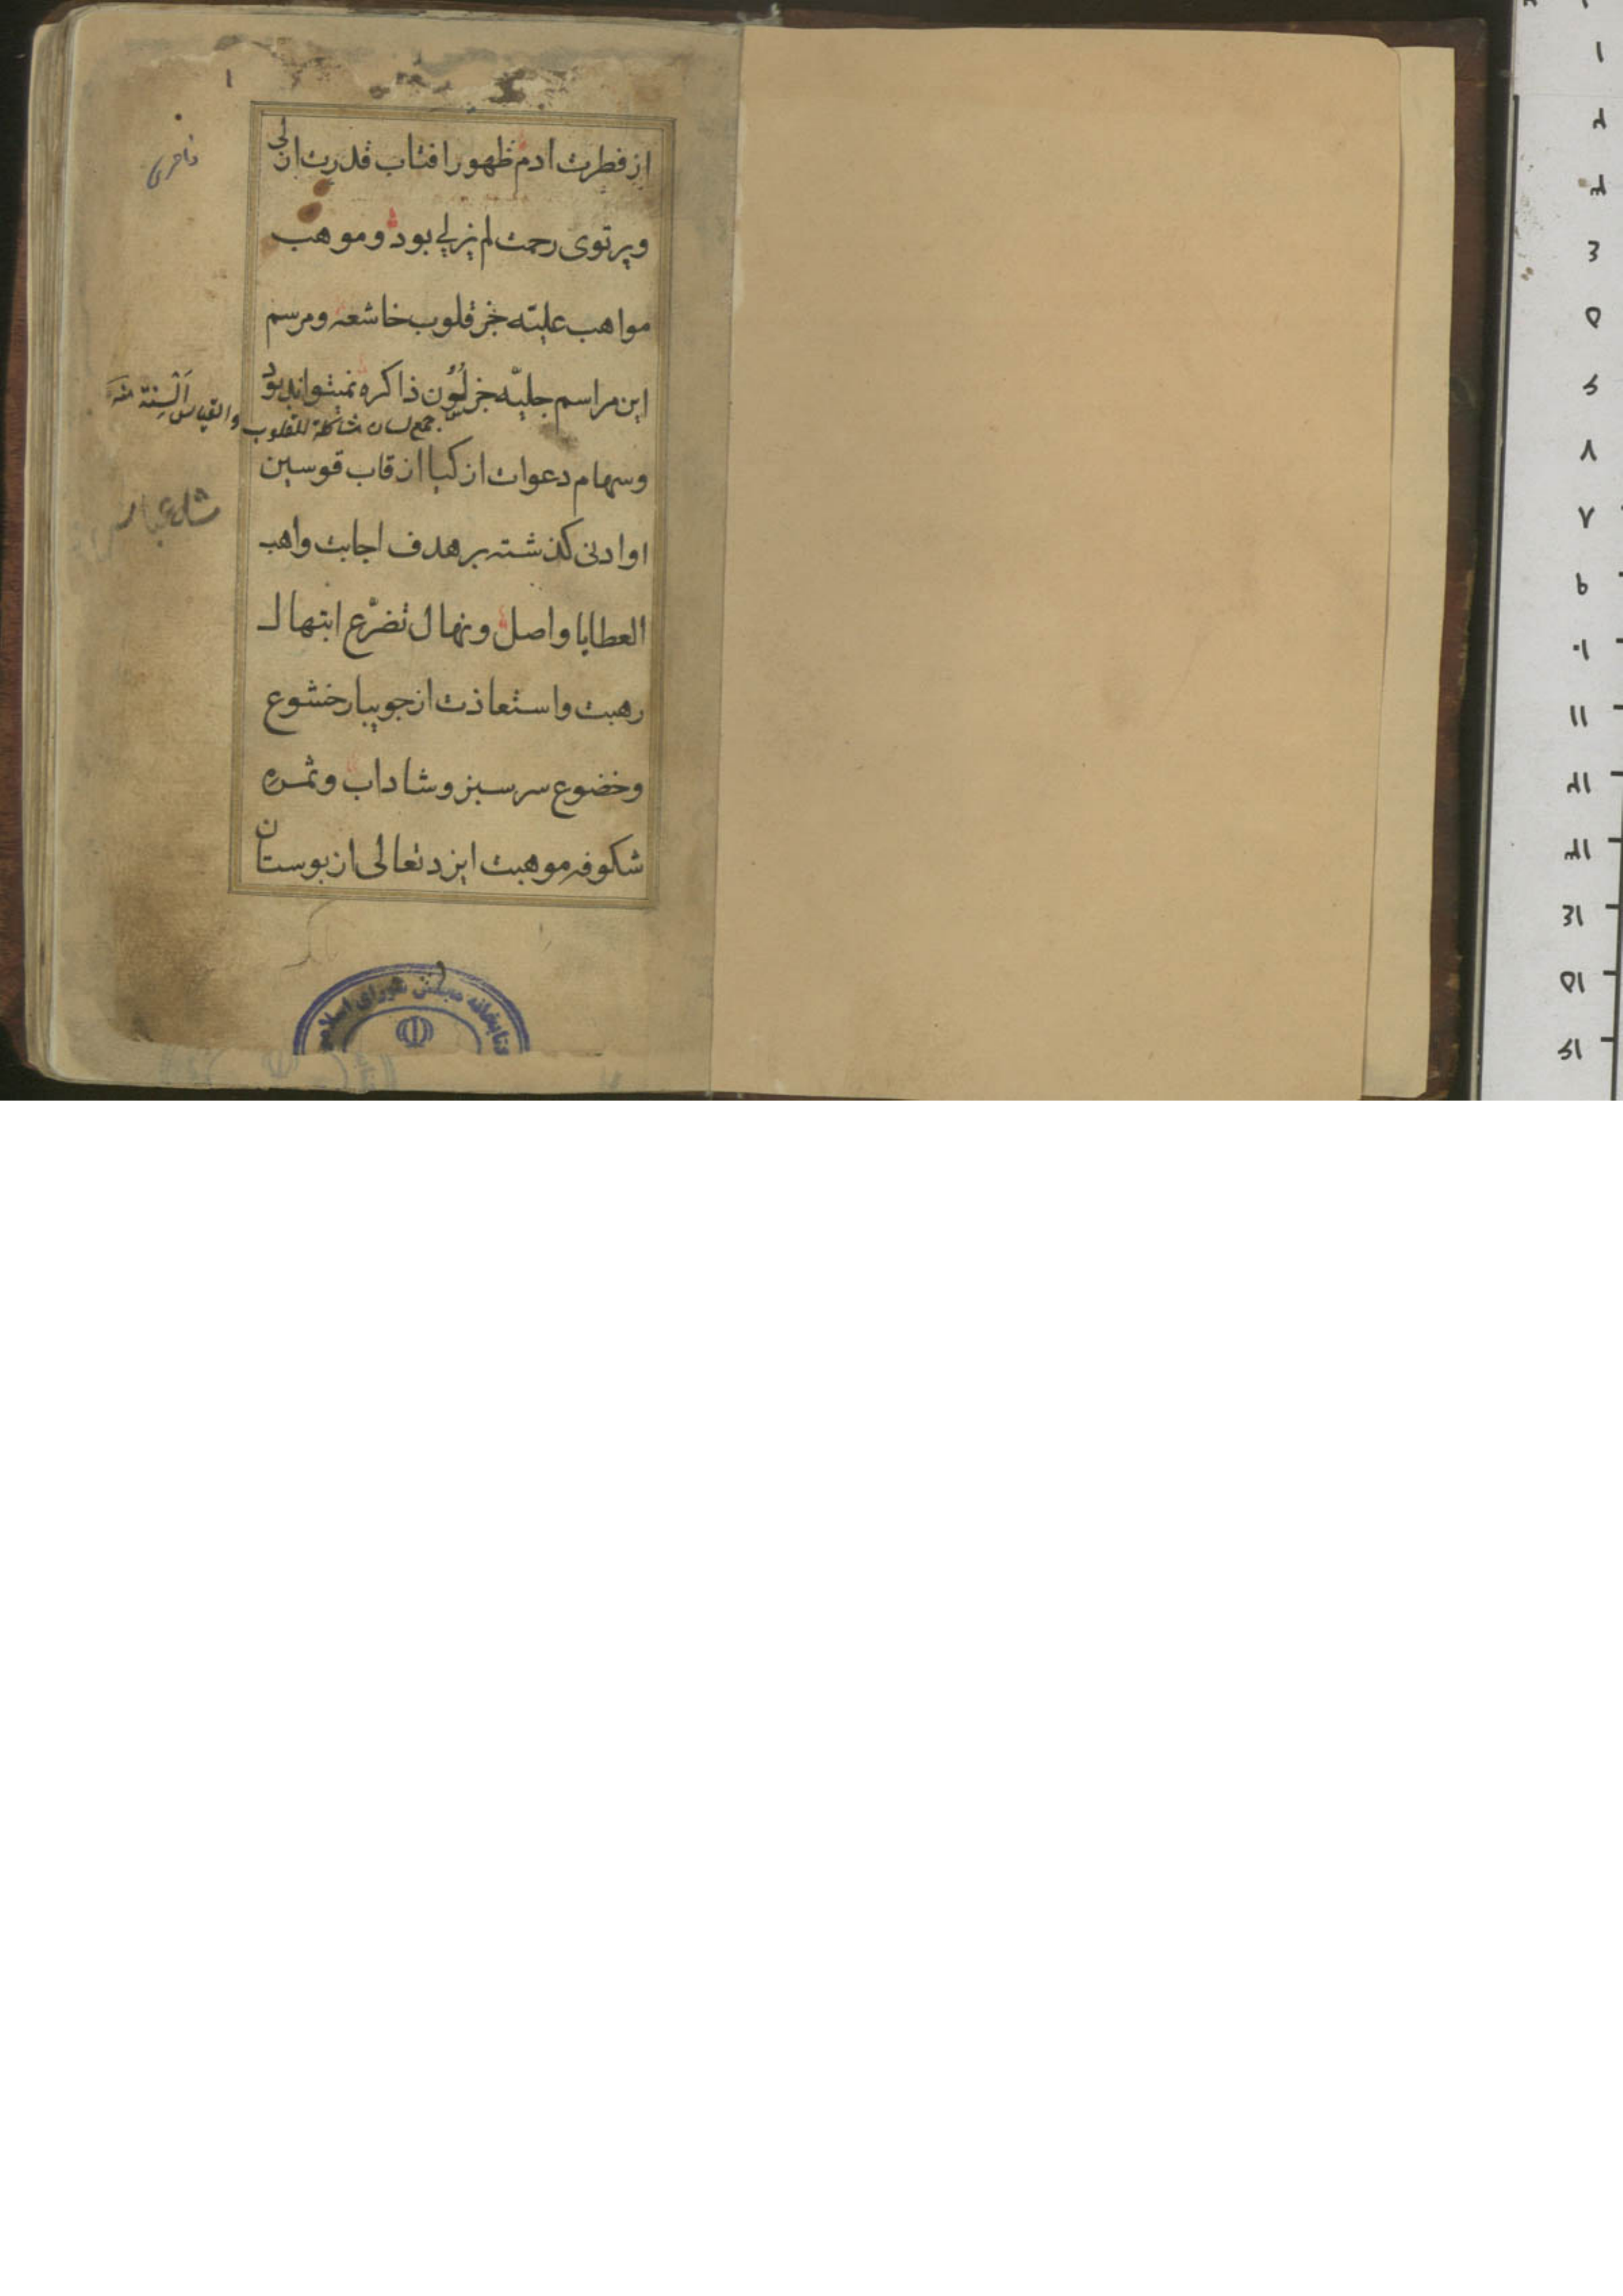 ۱
از فطرت ادم ظهور افتاب قدرت ازلی
و پرتوی رحمت لم یزلی بود و موهب
مواهب علیّه جز قلوب خاشعه و مرسم
این مراسم جلیّه جز لُسُن ذاکره نمیتواند بود
جمع لسان مشاکلة للقلوب والقیاس اَلْسِنَة منه
و سهام دعوات ازکیا از قاب قوسین
او ادنی کذشته بر هدف اجابت واهب
العطایا واصل و نهال تضرّع ابتهال
رهبت و استعاذت از جویبار خشوع
و خضوع سرسبز و شاداب و ثمره
شکوفه موهبت ایزد تعالی از بوستان
کتابخانه مجلس شورای اسلامی